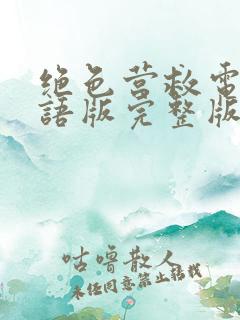 绝色营救電
語版完整版
咕噜散人
未经同意禁止转载